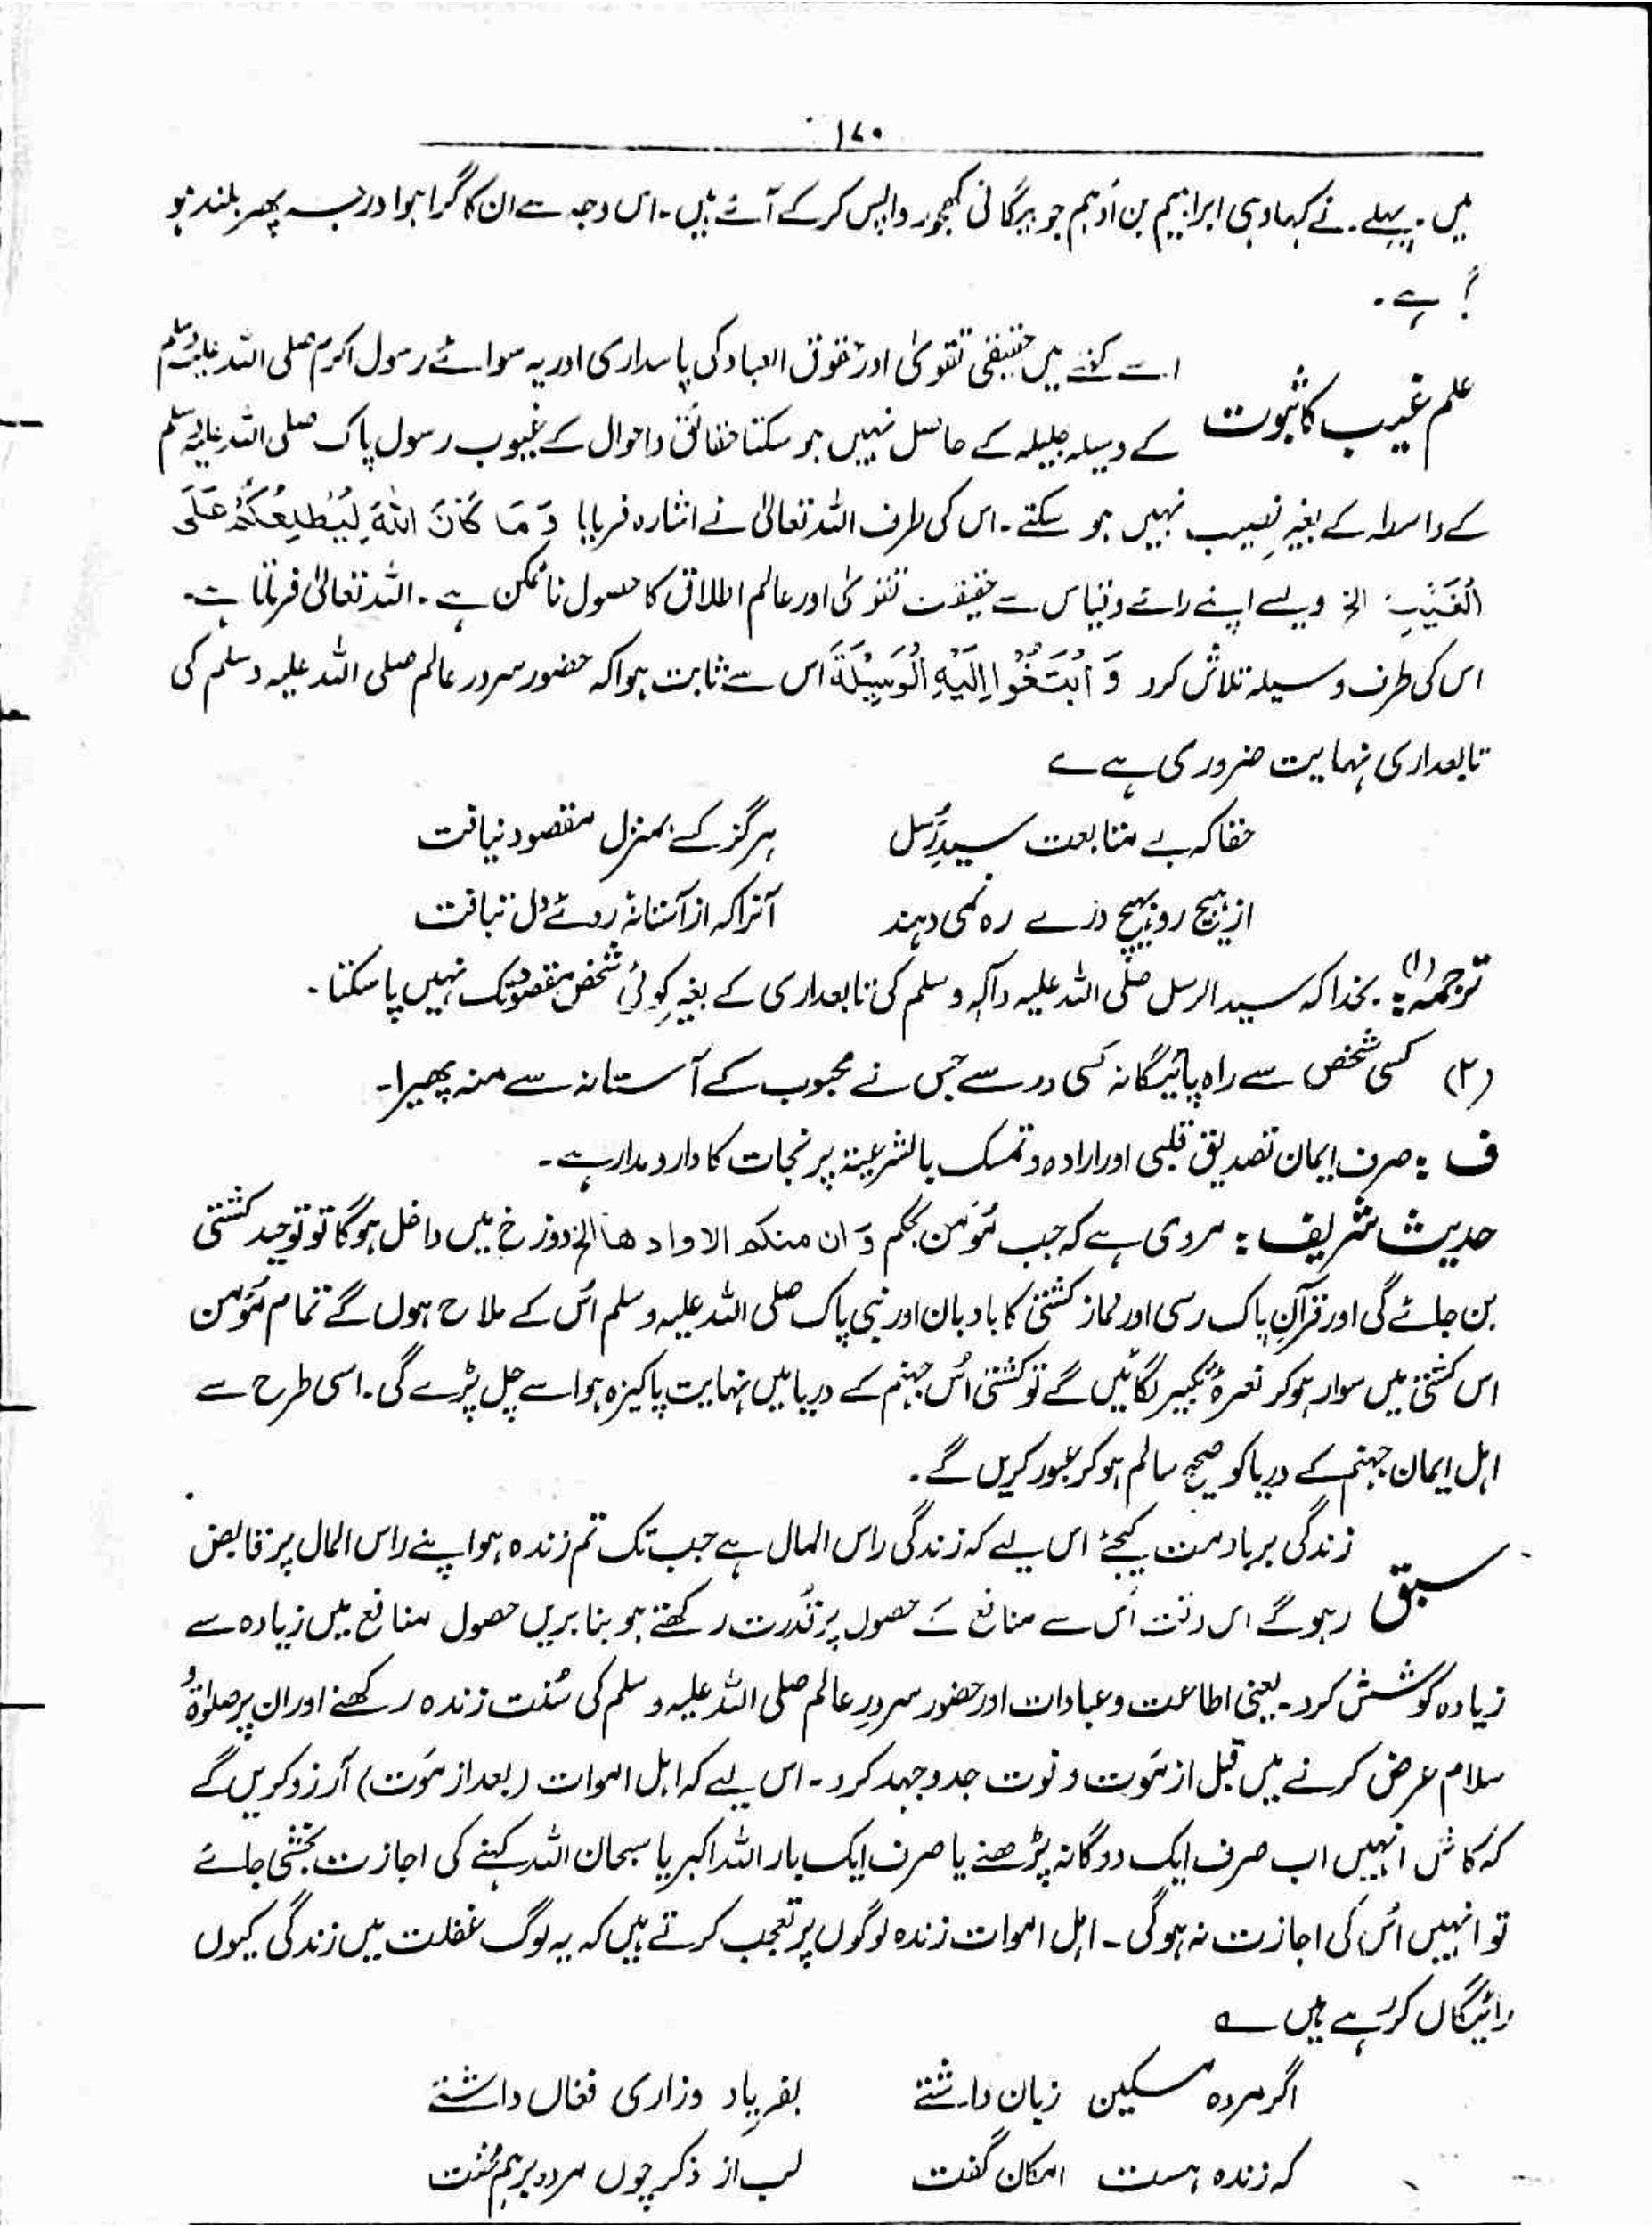 ۱۷۰
میں۔ پہلے۔ نے کہا وہی ابراہیم بن اَدہم جو بیگانی کھجور واپس کرکے آئے ہیں۔ اس وجہ سے ان کا گرا ہوا درجہ پھر بلند ہو
گیا ہے۔
علم غیب کا ثبوت
اسے کہتے ہیں حقیقی تقویٰ اور حقوق العباد کی پاسداری اور یہ سوائے رسول اکرم صلی اللہ علیہ وسلم
کے وسیلہ جلیلہ کے حاصل نہیں ہو سکتا حقائق و احوال کے غیوب رسول پاک صلی اللہ علیہ وسلم
کے واسطہ کے بغیر نصیب نہیں ہو سکتے۔ اس کی طرف اللہ تعالیٰ نے اشارہ فرمایا وَ مَا كَانَ اللهُ لِيُطْلِعَكُمْ عَلَى
الْغَيْبِ الخ ویسے اپنے رائے و قیاس سے حقیقت تقویٰ اور عالم اطلاق کا حصول ناممکن ہے۔ اللہ تعالیٰ فرماتا ہے۔
اس کی طرف وسیلہ تلاش کرو وَ ابْتَغُوْا اِلَيْهِ الْوَسِيْلَةَ اس سے ثابت ہوا کہ حضور سرور عالم صلی اللہ علیہ وسلم کی
تابعداری نہایت ضروری ہے ؎
حقا کہ بے متابعت سیدِ رُسل ہرگز کسے بمنزل مقصود نیافت
از ہیچ رو بہیچ درے رہ نمی دہند آنرا کہ از آستانۂ روئے دل بتافت
ترجمہ: (۱) بخدا کہ سید الرسل صلی اللہ علیہ وآلہ وسلم کی تابعداری کے بغیر کوئی شخص مقصود تک نہیں پا سکتا۔
(۲) کسی شخص سے راہ پائیگا نہ کسی در سے جس نے محبوب کے آستانہ سے منہ پھیرا۔
ف: صرف ایمان تصدیق قلبی اور ارادہ و تمسک بالشریعۃ پر نجات کا دارومدار ہے۔
حدیث شریف: مروی ہے کہ جب مُؤمن بحکم وَ ان منکم الا وادھا الخ دوزخ میں داخل ہوگا تو توحید کشتی
بن جائے گی اور قرآنِ پاک رسی اور نماز کشتی کا بادبان اور نبی پاک صلی اللہ علیہ وسلم اُس کے ملاح ہوں گے تمام مُؤمن
اس کشتی میں سوار ہوکر نعرۂ تکبیر لگائیں گے تو کشتی اُس جہنم کے دریا میں نہایت پاکیزہ ہوا سے چل پڑے گی۔ اسی طرح سے
اہل ایمان جہنم کے دریا کو صحیح سالم ہو کر عبور کریں گے۔
سبق
زندگی برباد مت کیجئے اس لیے کہ زندگی راس المال ہے جب تک تم زندہ ہو اپنے راس المال پر قابض
رہو گے اس وقت اُس سے منافع کے حصول پر قدرت رکھتے ہو بنابریں حصول منافع میں زیادہ سے
زیادہ کوشش کرو۔ یعنی اطاعت و عبادات اور حضور سرورِ عالم صلی اللہ علیہ وسلم کی سُنت زندہ رکھنے اور ان پر صلوٰۃ و
سلام عرض کرنے میں قبل از مَوت و فوت جدوجہد کرو۔ اس لیے کہ اہل اموات (بعد از مَوت) آرزو کریں گے
کہ کاش انہیں اب صرف ایک دوگانہ پڑھنے یا صرف ایک بار اللہ اکبر یا سبحان اللہ کہنے کی اجازت بخشی جائے
تو انہیں اُس کی اجازت نہ ہوگی۔ اہل اموات زندہ لوگوں پر تعجب کرتے ہیں کہ یہ لوگ غفلت میں زندگی کیوں
رائیگاں کر رہے ہیں ؎
اگر مردہ مسکین زبان داشتے بفریاد وزاری فغاں داشتے
کہ زندہ ہست امکان گفت لب از ذکر چوں مردہ برہم مخفت